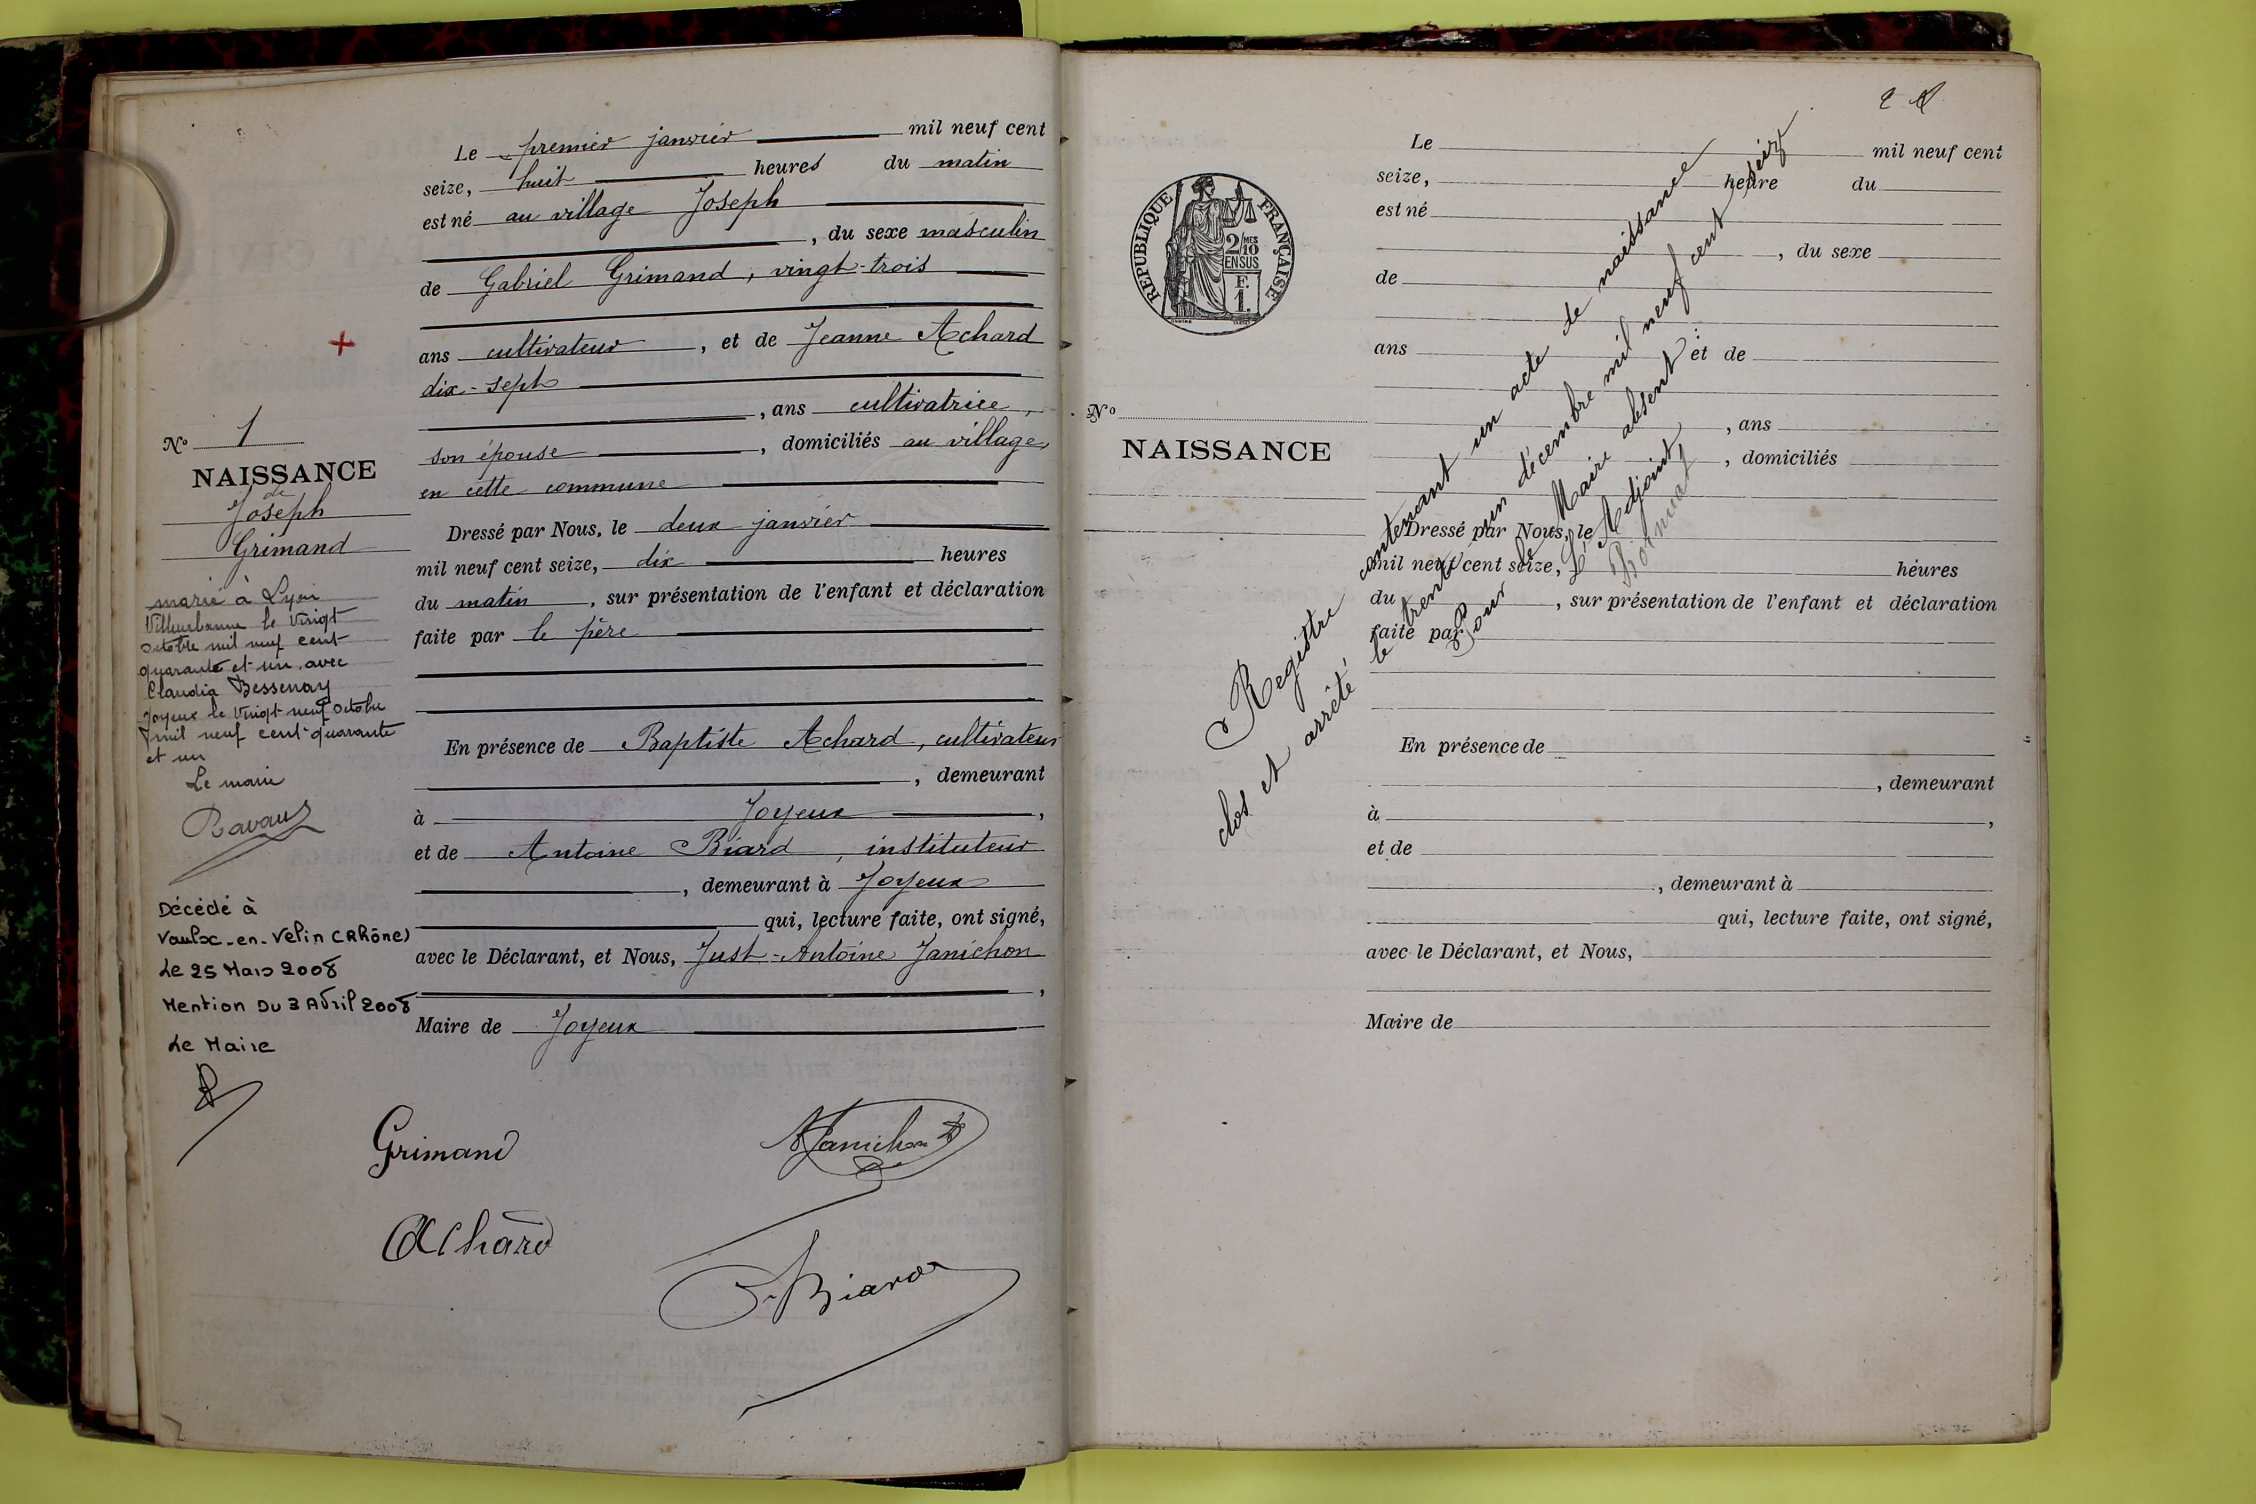 N° 1
NAISSANCE
de
Joseph
Grimand
marié à Lyon
Villeurbanne le Vingt
octobre mil neuf cent
quarante et un, avec
Claudia Bessenay
Joyeux le Vingt neuf octobre
mil neuf cent quarante
et un
Le maire
Ravaux
Décédé à
Vaulx-en-Velin (Rhône)
Le 25 Mars 2008
Mention Du 3 Avril 2008
Le Maire
Le premier janvier mil neuf cent
seize, huit heures du matin
est né au village Joseph
, du sexe masculin
de Gabriel Grimand, vingt-trois
ans cultivateur, et de Jeanne Achard
dix-sept
, ans cultivatrice,
son épouse, domiciliés au village,
en cette commune
Dressé par Nous, le deux janvier
mil neuf cent seize, dix heures
du matin, sur présentation de l'enfant et déclaration
faite par le père
En présence de Baptiste Achard, cultivateur
, demeurant
à Joyeux,
et de Antoine Biard, instituteur
, demeurant à Joyeux
qui, lecture faite, ont signé,
avec le Déclarant, et Nous, Just-Antoine Janichon
,
Maire de Joyeux
Grimand
AJanichon
Achard
Biard
2
RÉPUBLIQUE FRANÇAISE
2/10
MES
EN SUS
F.
1.
N°
NAISSANCE
Le mil neuf cent
seize, heure du
est né
, du sexe
de
ans et de
, ans
, domiciliés
Dressé par Nous, le
mil neuf cent seize, heures
du, sur présentation de l'enfant et déclaration
faite par
En présence de
, demeurant
à,
et de
, demeurant à
qui, lecture faite, ont signé,
avec le Déclarant, et Nous,
Maire de
Registre contenant un acte de naissance
clos et arrêté le trente un décembre mil neuf cent seize
Pour le Maire absent :
L'Adjoint